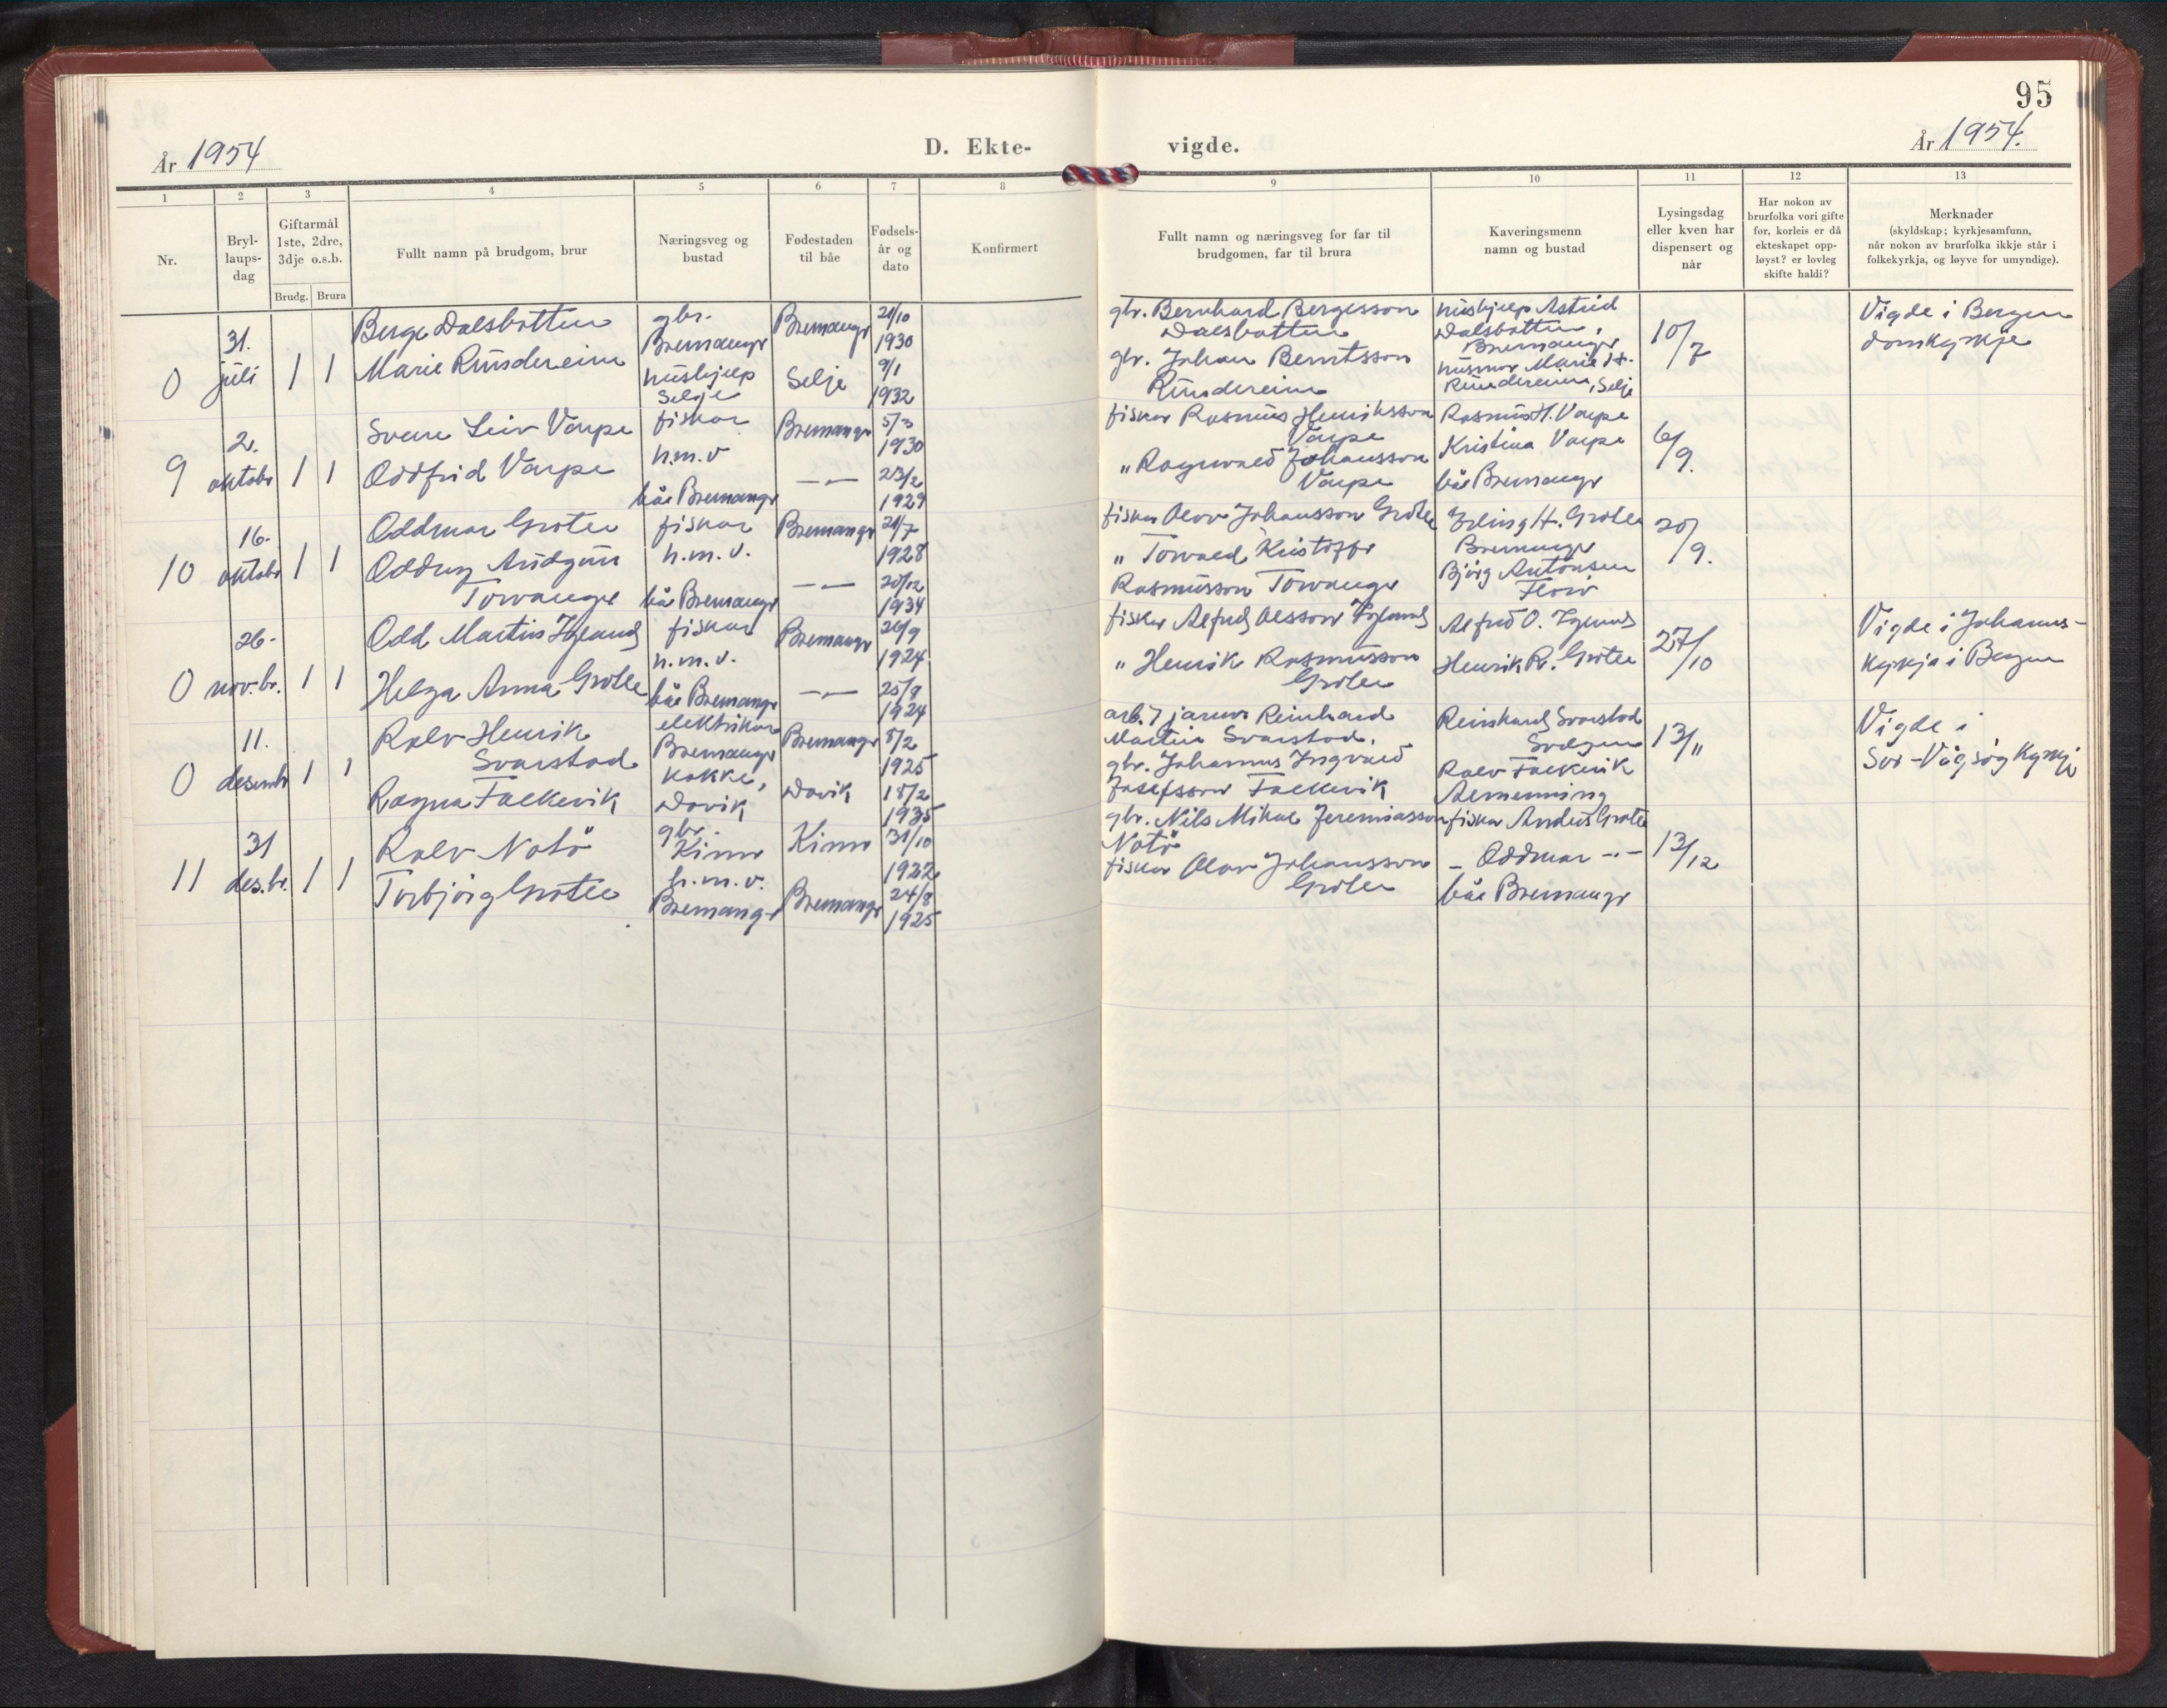 95
År 1954
D. Ekte-
vigde.
År 1954.
1 2 3 4 5 6 7 8 9 10 11 12 13
Nr.
Bryl-
laups-
dag
Giftarmål
1ste, 2dre,
3dje o.s.b.
Brudg. Brura
Fullt namn på brudgom, brur
Næringsveg og
bustad
Fødestaden
til båe
Fødsels-
år og
dato
Konfirmert
Fullt namn og næringsveg for far til
brudgomen, far til brura
Kaveringsmenn
namn og bustad
Lysingsdag
eller kven har
dispensert og
når
Har nokon av
brurfolka vori gifte
før, korleis er då
ekteskapet opp-
løyst? er lovleg
skifte haldi?
Merknader
(skyldskap; kyrkjesamfunn,
når nokon av brurfolka ikkje står i
folkekyrkja, og løyve for umyndige).
0
31.
juli
1 1
Berge Dalsbotten
Marie Rundereim
gbr.
Bremanger
hushjelp
Selje
Bremanger
Selje
21/10
1930
9/1
1932
gbr. Bernhard Bergesson
Dalsbotten
gbr. Johan Berntsson
Rundereim
hushjelp Astrid
Dalsbotten,
Bremanger
husmor Marie
Rundereim, Selje
10/7
Vigde i Bergen
domkyrkje
9
2.
oktober
1 1
Svein Leiv Varpe
Oddfrid Varpe
fiskar
h.m.v
båe Bremanger
Bremanger
—"—
5/3
1930
23/2
1929
fiskar Rasmus Henriksson
Varpe
" Ragnvald Johansson
Varpe
Rasmus H. Varpe
Kristina Varpe
båe Bremanger
6/9.
10
16.
oktober
1 1
Oddmar Grotle
Oddny Audgun
Torvanger
fiskar
h.m.v.
båe Bremanger
Bremanger
—"—
21/7
1928
20/12
1934
fiskar Olav Johansson Grotle
" Torvald Kristoffer
Rasmusson Torvanger
Erling H. Grotle
Bremanger
Bjørg Antonsen
Florø
20/9.
0
26.
nov.br.
1 1
Odd Martin Igland
Helga Anna Grotle
fiskar
h.m.v.
båe Bremanger
Bremanger
—"—
26/9
1924
25/8
1924
fiskar Alfred Olsson Igland
" Henrik Rasmusson
Grotle
Alfred O. Igland
Henrik R. Grotle
27/10
Vigde i Johannes-
kyrkja i Bergen
0
11.
desembr
1 1
Rolv Henrik
Svarstad
Ragna Falkevik
elektrikar
Bremanger
kokke,
Davik
Bremanger
Davik
8/2
1925
18/2
1935
Reinhard
Martin Svarstad.
gbr. Johannes Ingvald
Josefsson Falkevik
Reinhard Svarstad
Svelgen
Rolv Falkevik
Almenning
13/11
Vigde i
Sør-Vågsøy kyrkje
11
31
des.br.
1 1
Rolv Notø
Torbjørg Grotle
gbr.
Kinn
h.m.v.
Bremanger
Kinn
Bremanger
31/10
1922
24/8
1925
gbr. Nils Mikal Jeremiasson
Notø
fiskar Olav Johansson
Grotle
fiskar Anders Grotle
– Oddmar –"–
båe Bremanger
13/12